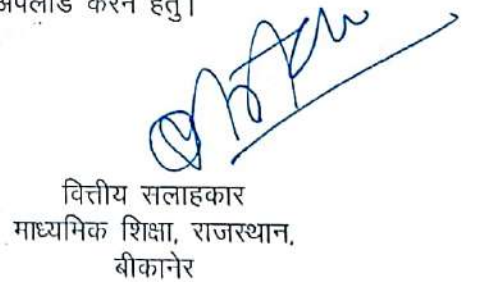 अपलोड करने हेतु।
वित्तीय सलाहकार
माध्यमिक शिक्षा, राजस्थान,
बीकानेर